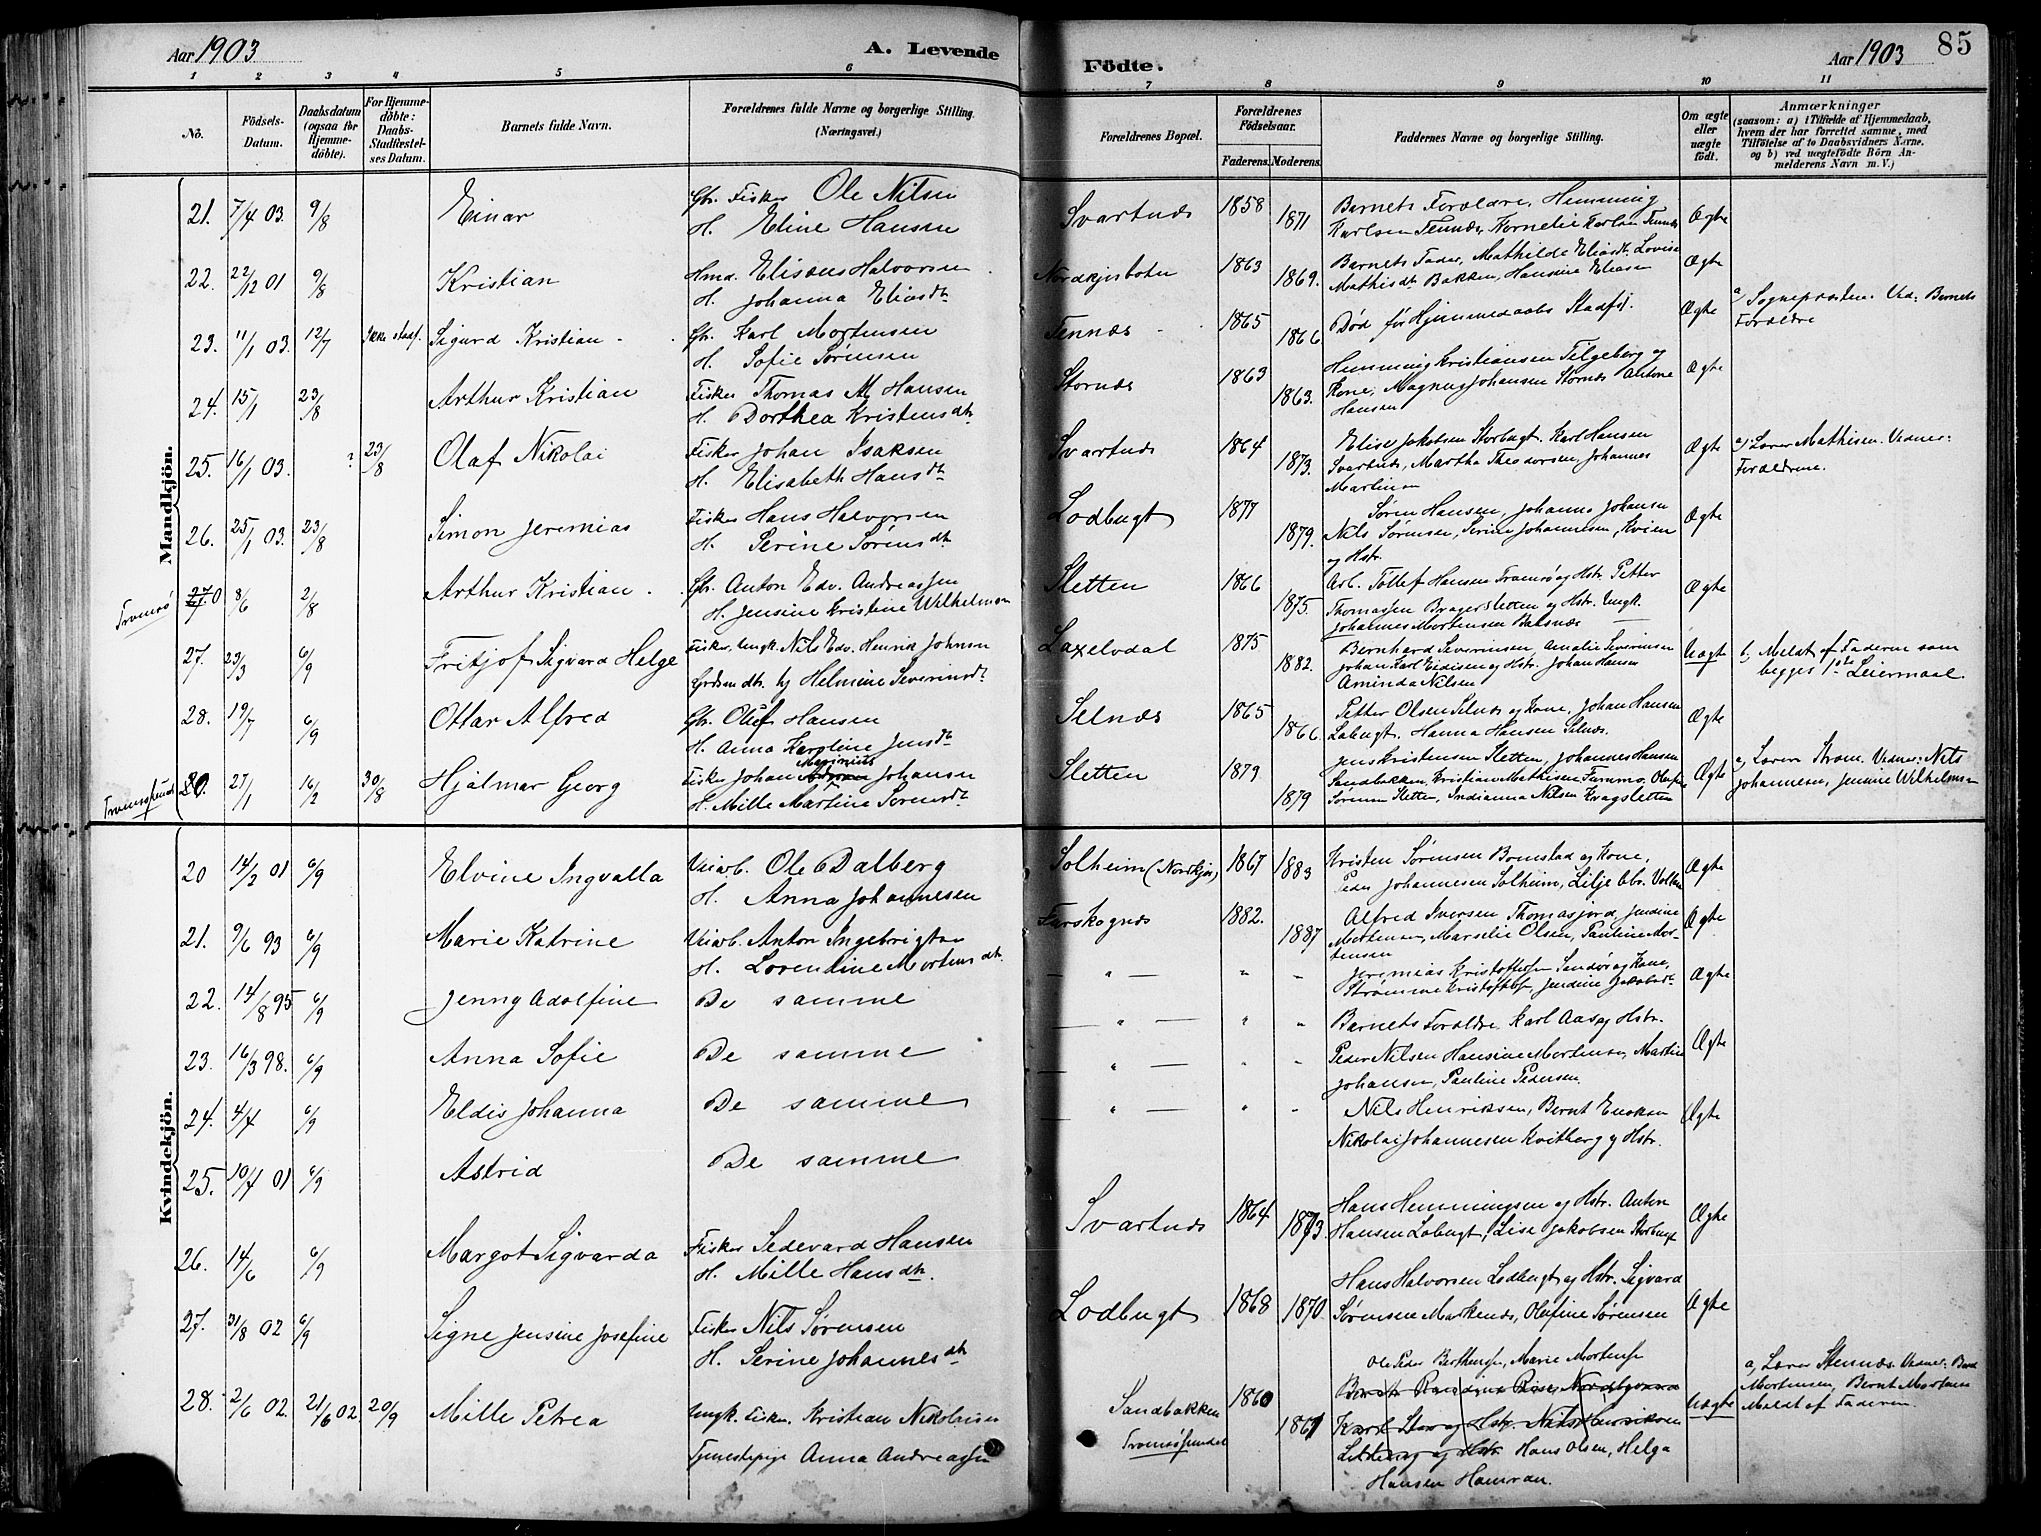 Aar 1903
A. Levende
Födte.
Aar 1903
85
1 2 3 4 5 6 7 8 9 10 11
Nö.
Födsels-
Datum.
Daabsdatum
(ogsaa for
Hjemme-
döbte).
For Hjemme-
döbte:
Daabs-
Stadfæstel-
ses Datum.
Barnets fulde Navn.
Forældrenes fulde Navne og borgerlige Stilling.
(Næringsvei.)
Forældrenes Bopæl.
Forældrenes
Födselsaar.
Faderens. Moderens.
Faddernes Navne og borgerlige Stilling.
Om ægte
eller
uægte
født.
Anmærkninger
(saasom: a) i Tilfælde af Hjemmedaab,
hvem der har forrettet samme, med
Tilföielse af to Daabsvidners Navne.
og b) ved uægtefödte Börn An-
melderens Navn m. V.)
Mandkjön.
21. 7/4 03. 9/8 Einar
Gbr. Fisker Ole Nilsen
H. Eline Hansen
Svartnes 1858 1871
Barnets Forældre, Hemming
Karlsen Tennes, Kornelie Karlsen Tennes
Ægte
22. 22/12 01 9/8 Kristian
Hmd. Elisæus Halvorsen
H. Johanna Eliasdtr
Nordkjosboten 1863 1869.
Barnets Fader, Mathilde Eliasdtr, Lovise
Mathisdtr Bakken, Hansine Eliasen
Ægte
23. 11/1 03. 12/7 Ikke stadf. Sigurd Kristian
Gbr. Karl Mortensen
H. Sofie Sørensen
Tennæs 1865 1866
Død før Hjemmedaabs Stadf.
Ægte
a) Sognepræsten. Vid: Barnets
Forældre
24. 15/1 23/8 Arthur Kristian
Fisker Thomas M. Hansen
H. Dorthea Kristensdtr
Stornes 1863 1863.
Hemming Kristiansen Telgeberg og
Kone, Magnus Johansen Stornes Antone
Hansen
Ægte
25. 16/1 03. ? 23/8 Olaf Nikolai
Fisker Johan Isaksen
H. Elisabeth Hansdtr
Svartnes 1864 1873.
Elise Jakobsen Storbugt. Karl Hansen
Svartnes, Martha Theodorsen, Johannes
Martinsen
Ægte
a) Lærer Mathisen. Vidner:
Forældrene.
26. 25/1 03. 23/8 Simon Jeremias
Fisker Hans Halvorsen
H. Serine Sørensdtr.
Lodbugt 1877 1879.
Søren Hansen, Johanna Johansen
Nils Sørensen, Serine Johannesen,
og Hstr.
Ægte
Tromsø 27.0 8/6 2/8 Arthur Kristian.
Gbr. Anton Edv. Andreassen
H. Jensine Kristine Wilhelmsen
Sletten 1866 1875.
Arb. Tollef Hansen Tromsø og Hstr. Petter
Thomassen Bragersletten og Hstr. Ungk.
Johannes Mortensen Balsnes
Ægte
27. 23/3 6/9 Fritjof Sigvard Helge
Fisker, Ungk. Nils Edv. Henrik Johnsen
Grdsm.dtr. Helmine Severinsdtr
Laxelvdal 1875 1882.
Bernhard Severinsen, Amalie Severinsen
Johan Karl Eidisen og Hstr. Johan Hansen
Aminda Nilsen
Uægte
b) Meldt af Faderen som
begges 1ste Leiermaal.
28. 19/7 6/9 Ottar Alfred
Gbr. Oluf Hansen
H. Anna Karoline Jensdtr
Selnæs 1865 1866.
Petter Olsen Selnes og Kone, Johan Hansen
Labugt, Hanna Hansen Selnes.
Ægte
Tromsøsund 27/1 16/2 30/8 Hjalmar Georg
Fisker Johan Johansen
H. Mille Martine Sørensdtr.
Sletten 1879 1879
Jens Kristensen Sletten, Johannes Hansen
Sandbakken, Kristian Mathisen
Sørensen Sletten, Indianna Nilsen Kragsletten
Ægte
a) Lærer Strøm. Vidner: Nils
Johannesen, Jensine Wilhelmsen
Kvindekjön.
20 14/2 01 6/9 Elvine Ingvalla
Veiarb. Ole Dalberg
H. Anna Johannesen
Solheim (Nordkjos) 1867 1883
Kristen Sørensen Bomstad og Kone,
Peder Johannesen Solheim, Lilje
Ægte
21. 9/6 93 6/9 Marie Katrine
Veiarb. Anton Ingebrigtsen
H. Lorendine Mortensdtr.
Furskognes 1882. 1887
Alfred Iversen Thomasjord, Jendine
Mortensen, Marselie Olsen, Pauline Mor-
tensen
Ægte
22. 14/8 95 6/9 Jenny Adolfine
De samme
— " — " "
Jeremias Kristoffersen Sandøre og Kone,
Strømme Kristoffersen, Jendine Jakobsdtr.
Ægte
23. 16/3 98. 6/9 Anna Sofie
De samme
— " — " "
Barnets Forældre, Karl Aas og Hstr.
Ægte
24. 4/7 6/9 Eldis Johanna
De samme
— " — "
Peder Nilsen Hansine Mortensen, Martin
Johansen, Pauline Pedersen.
25. 10/7 01 6/9 Astrid
De samme
" — " "
Nils Henriksen, Bernt Enoksen
Nikolai Johannesen Kvitberg og Hstr.
Ægte
26. 14/6 6/9 Margot Sigvarda
Fisker Sedevard Hansen
H. Mille Hansdtr.
Svartnes 1864 1873
Hans Hemmingsen og Hstr. Anton
Hansen Labugt, Lise Jakobsen Storbugt
Ægte
27. 31/8 02 6/9 Signe Jensine Josefine
Fisker Nils Sørensen
H. Serine Johannesdtr
Lodbugt 1868 1870.
Hans Halvorsen Lodbugt og Hstr. Sigvard
Sørensen Markenes, Olufine Sørensen
Ægte
28. 2/6 02. 21/6 02 20/9 Mille Petrea
Ungk. Fisker. Kristian Nikolaisen
Tjenestepige Anna Andreassen
Sandbakken
Tromsøsundet
1860 1861
Ole Peder Berthensen, Marie Mortensen
Hans Olsen, Helga
Hansen Hamran.
Uægte
a) Lærer Stennes. Vidner:
Mortensen, Bernt Mortensen
Meldt af Faderen.